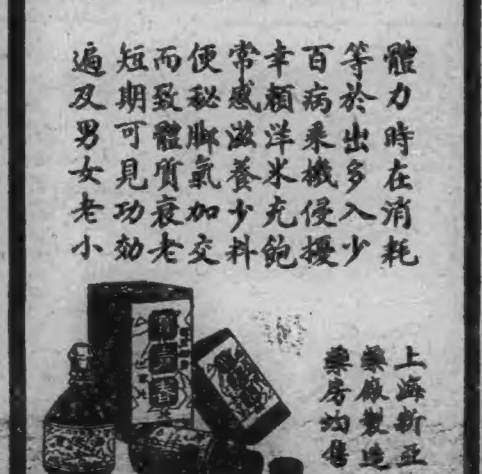 體力時在消耗
等於出多入少
百病乘機侵擾
幸賴洋米充飽
常感滋養少料
便秘脚氣加交
而致體質衰老
短期可見功効
遍及男女老小
上海新亞
藥廠製造
藥房均售